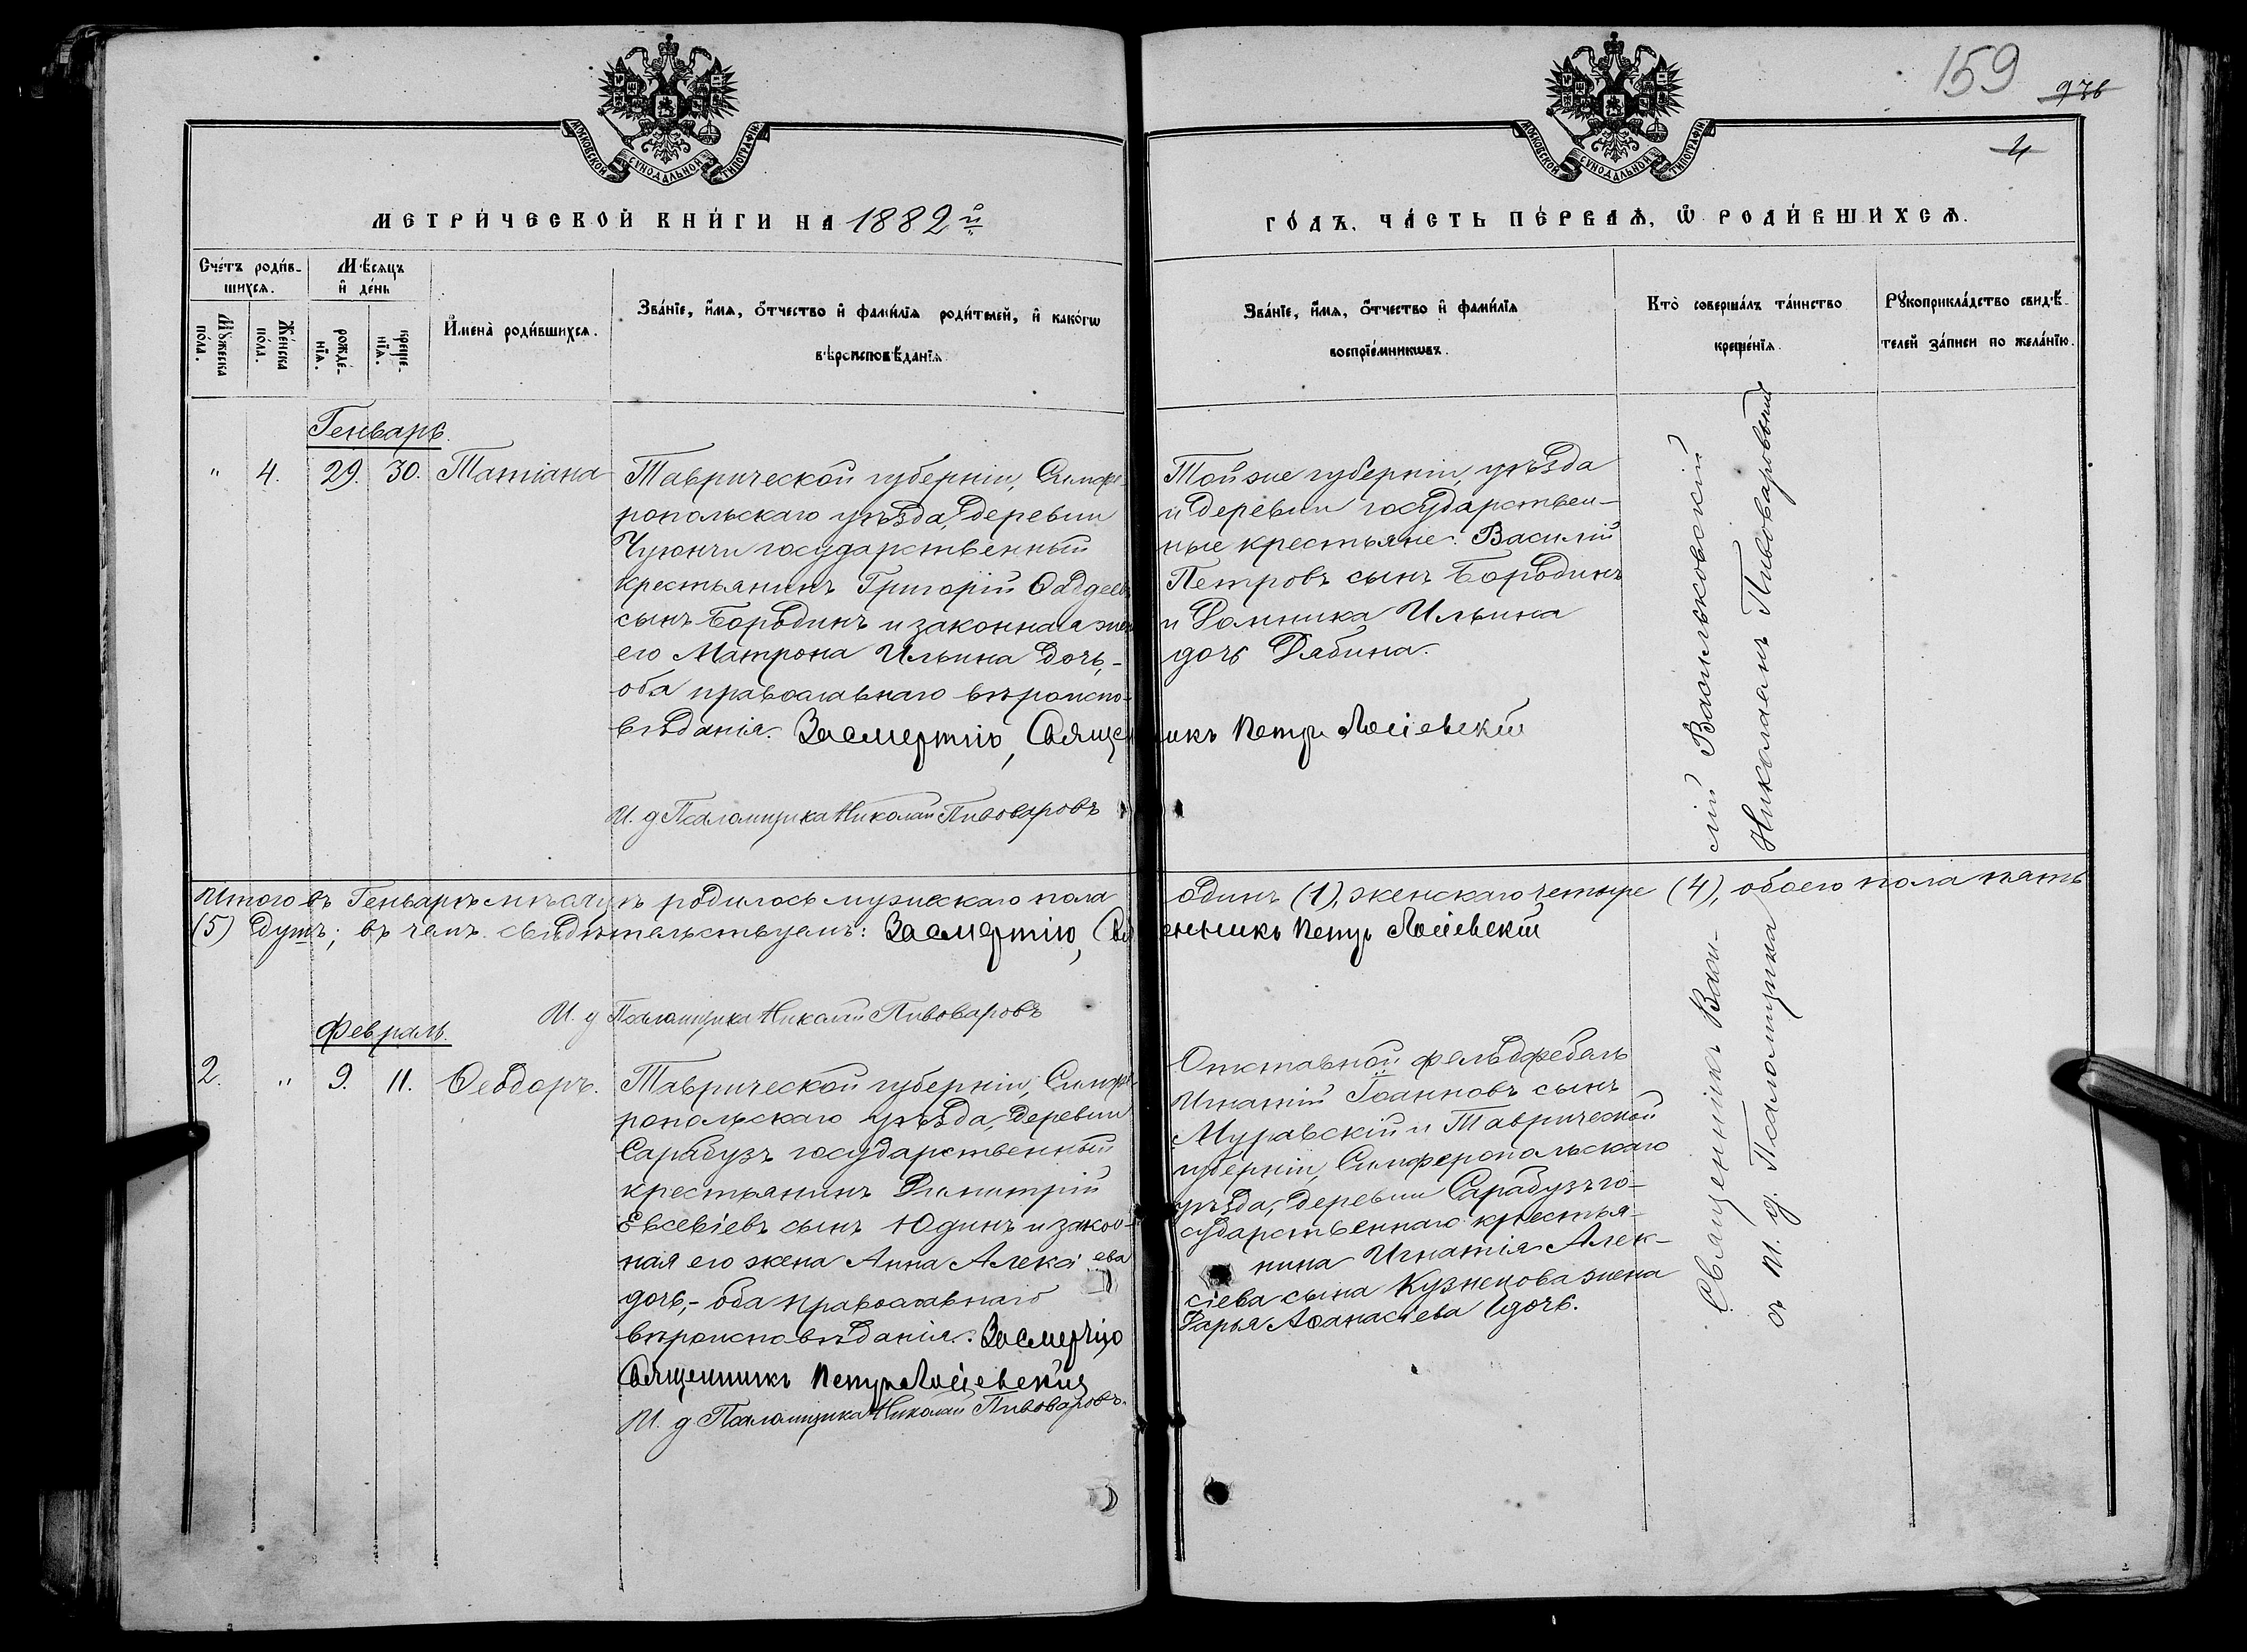 159
976
4
МОСКОВСКОЙ СУНОДАЛЬНОЙ ТИПОГРАФІИ
МОСКОВСКОЙ СУНОДАЛЬНОЙ ТИПОГРАФІИ
МЕТРИ́ЧЕСКОЙ КНИ́ГИ НА 1882 й
ГО́ДЪ, ЧА́СТЬ ПЕ́РВАѦ, Ѡ РОДИ́ВШИХСѦ.
Сче́тъ роди́в-
шихсѧ.
Мѣ́сѧцъ
и де́нь
Мꙋ́жеска
по́ла.
Же́нска
по́ла.
рожде́-
нїѧ.
креще́-
нїѧ.
И҆мена̀ роди́вшихсѧ.
Зва́нїе, и҆́мѧ, о҆́тчество и҆ фами́лїѧ роди́телей, и҆ како́гѡ
вѣроисповѣ́данїѧ.
Зва́нїе, и҆́мѧ, о҆́тчество и҆ фами́лїѧ
воспрїе́мникѡвъ.
Кто̀ соверша́лъ та́инство
креще́нїѧ.
Рꙋкоприкла́дство свидѣ́-
телей за́писи по жела́нїю.
Генварь.
" 4. 29. 30. Татіана
Таврической губерніи, Симфе-
ропольскаго уѣзда, деревни
Чуюнчи государственный
крестьянинъ Григорій Авдеевъ
сынъ Бородинъ и законная жена
его Матрона Ильина дочь,-
оба православнаго вѣроиспо-
вѣданія. За смертію, Священникъ Петръ Лосіевскій
И. д Псаломщика Николай Пивоваровъ
Той же губерніи, уѣзда
и деревни государствен-
ные крестьяне: Василій
Петровъ сынъ Бородинъ
и Домника Ильина
дочь Рябина.
Итого въ Генварѣ мѣсяцѣ родилось мужескаго пола одинъ (1), женскаго четыре (4), обоего пола пять
(5) душъ; въ чемъ свидѣтельствуемъ: За смертію, Священникъ Петръ Лосіевскій
И. д Псаломщика Николай Пивоваровъ
Февраль.
2. " 9. 11. Ѳеодоръ.
Таврической губерніи, Симфе-
ропольскаго уѣзда, деревни
Сарабузъ государственный
крестьянинъ Димитрій
Евсевіевъ сынъ Юдинъ и закон-
ная его жена Анна Алексѣева
дочь,- оба православнаго
вѣроисповѣданія. За смертію
Священникъ Петръ Лосіевскій
И. д Псаломщика Николай Пивоваровъ.
Отставной фельдфебель
Игнатій Іоанновъ сынъ
Муравскій и Таврической
губерніи, Симферопольскаго
уѣзда, деревни Сарабузъ го-
сударственнаго крестья-
нина Игнатія Алек-
сіева сына Кузнецова жена
Дарья Аѳанасіева дочь.
Священникъ Васи-
лій Васильковскій
съ И. д. Псаломщика
Николаемъ Пивоваровымъ